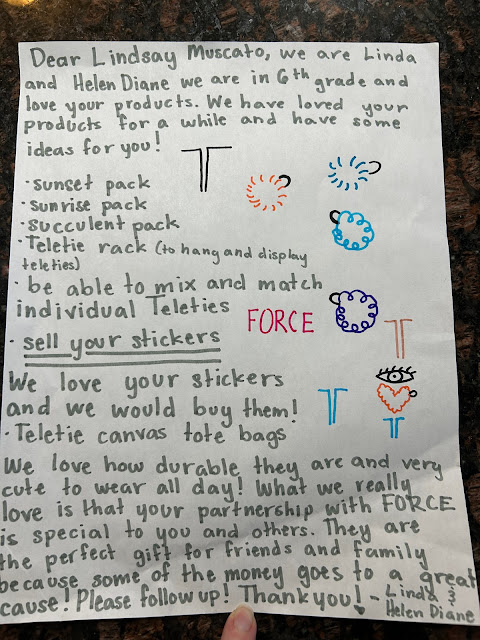 Dear Lindsay Muscato, we are Linda
and Helen Diane we are in 6th grade and
love your products. We have loved your
products for a while and have some
ideas for you!
T
· sunset pack
· sunrise pack
· succulent pack
· Teletie rack (to hang and display
teleties)
· be able to mix and match
individual Teleties
FORCE
T
· sell your stickers
We love your stickers
and we would buy them!
T
T
· Teletie canvas tote bags
We love how durable they are and very
cute to wear all day! What we really
love is that your partnership with FORCE
is special to you and others. They are
the perfect gift for friends and family
because some of the money goes to a great
cause! Please follow up! Thank you! - Linda &
Helen Diane